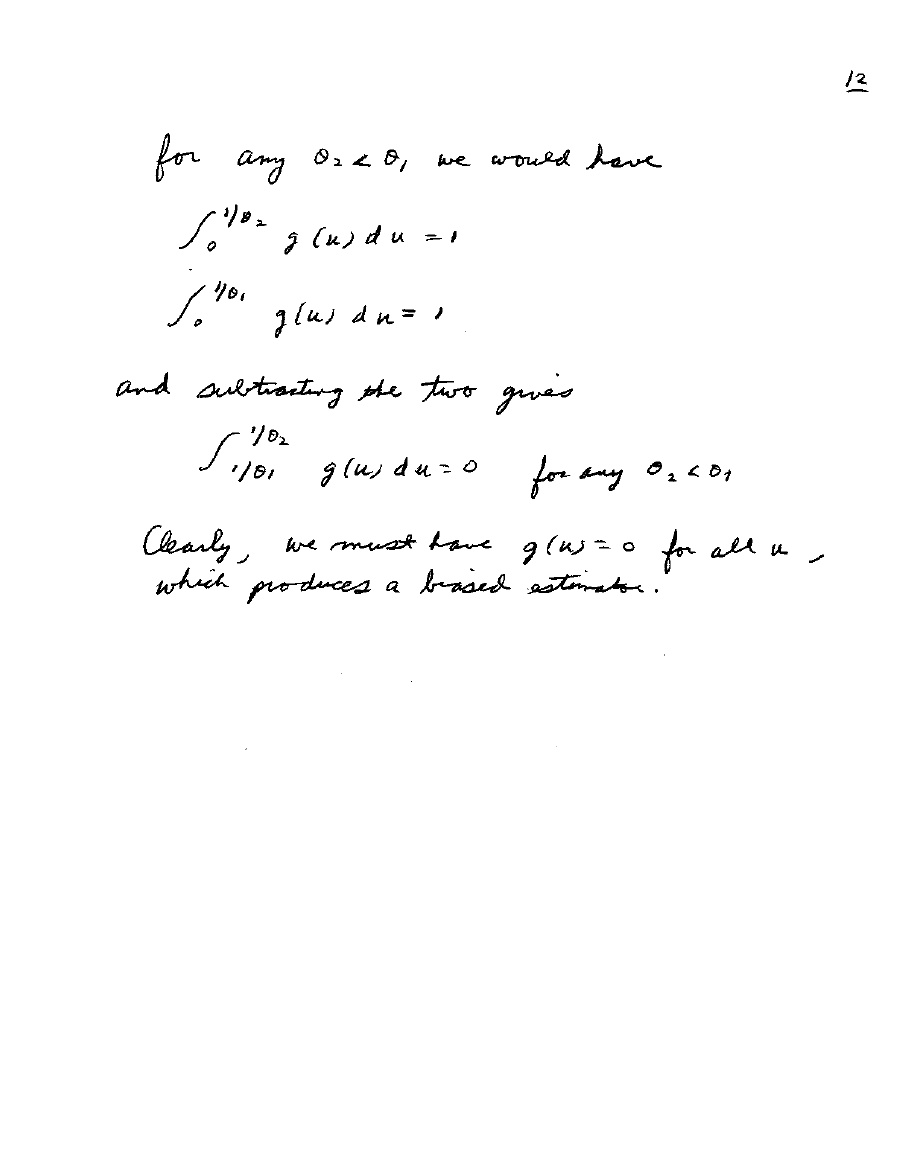 12
for any θ₂ < θ₁ we would have
∫₀^{1/θ₂} g(u) du = 1
∫₀^{1/θ₁} g(u) du = 1
and subtracting the two gives
∫_{1/θ₁}^{1/θ₂} g(u) du = 0 for any θ₂ < θ₁
Clearly, we must have g(u) = 0 for all u,
which produces a biased estimator.